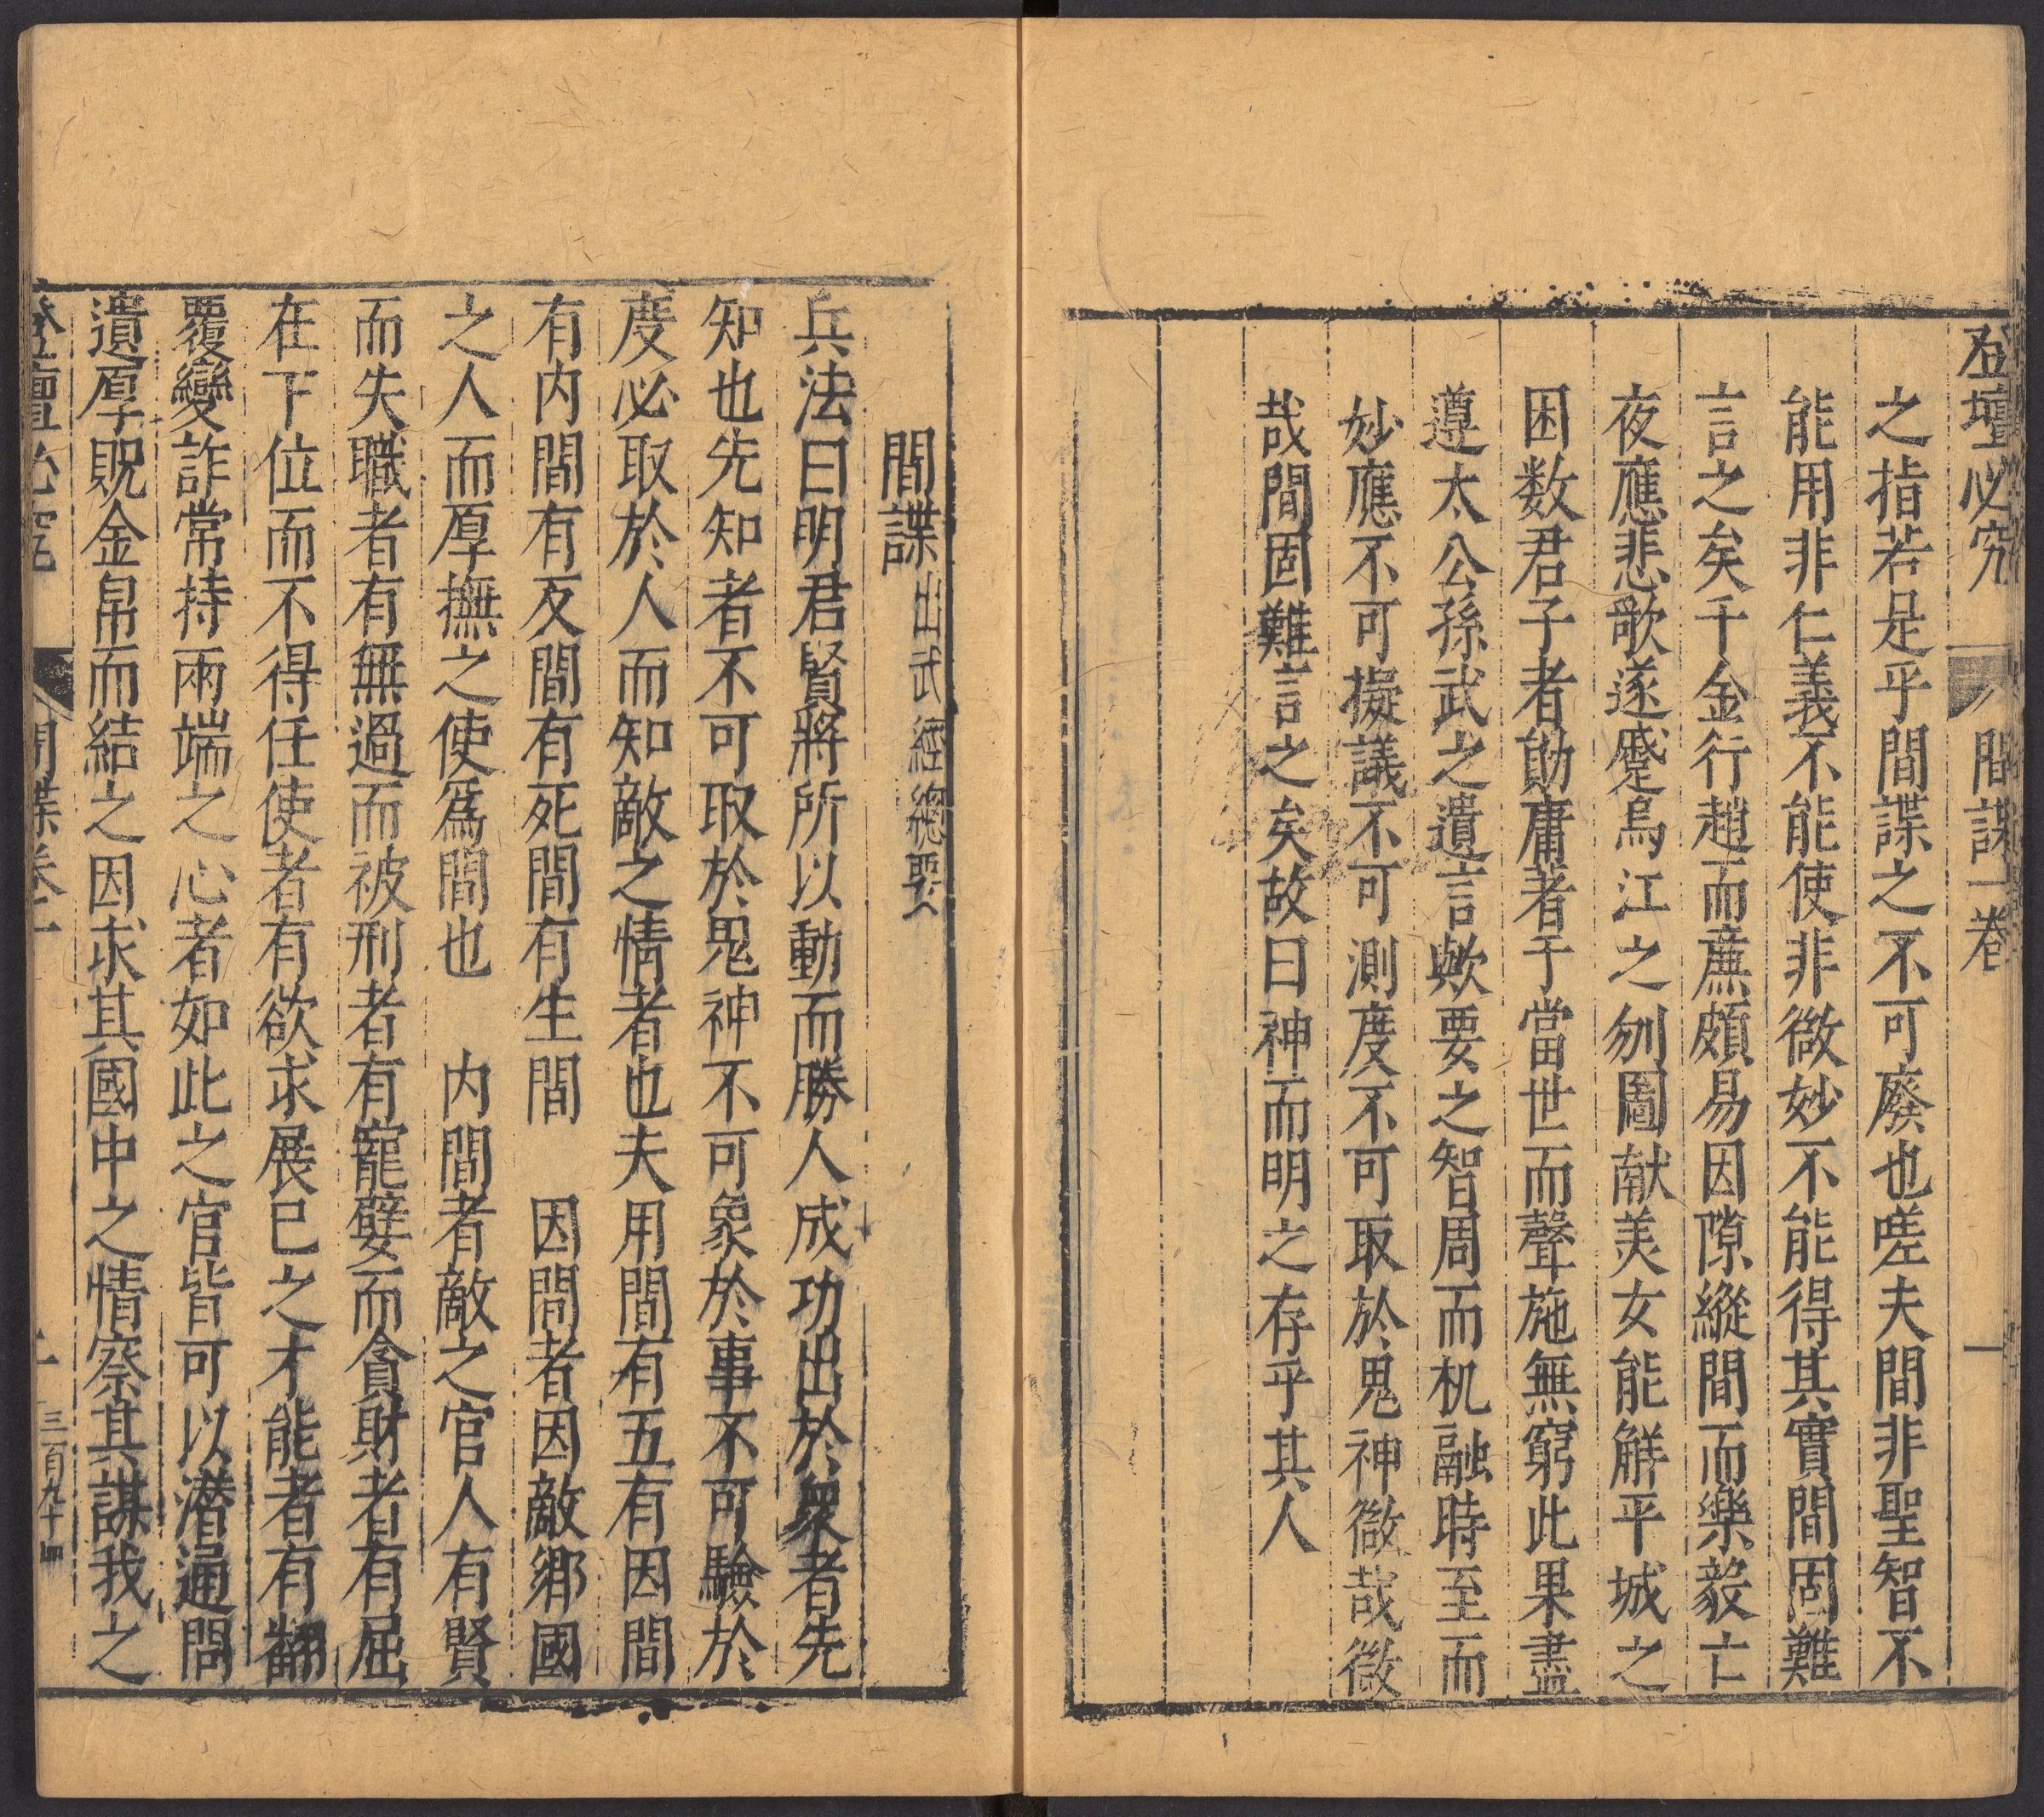 登壇必究 間諜一卷 一
之指若是乎間諜之不可廢也嗟夫間非聖智不
能用非仁義不能使非微妙不能得其實間固難
言之矣千金行趙而廉頗易因隙縱間而樂毅亡
夜應悲歌遂蹙烏江之刎圖献美女能觧平城之
困数君子者勛庸著于當世而聲施無窮此果盡
遵太公孫武之遺言歟要之智周而机融時至而
妙應不可擬議不可測度不可取於鬼神微哉微
哉間固難言之矣故曰神而明之存乎其人
間諜出武經總要
兵法曰明君賢將所以動而勝人成功出於衆者先
知也先知者不可取於鬼神不可象於事不可驗於
度必取於人而知敵之情者也夫用間有五有因間
有内間有反間有死間有生間 因間者因敵鄉國
之人而厚撫之使爲間也 内間者敵之官人有賢
而失職者有無過而被刑者有寵嬖而貪財者有屈
在下位而不得任使者有欲求展巳之才能者有翻
覆變詐常持兩端之心者如此之官皆可以潜通問
遺厚貺金帛而結之因求其國中之情察其謀我之
登壇必究 間諜卷一 一 三百九十四